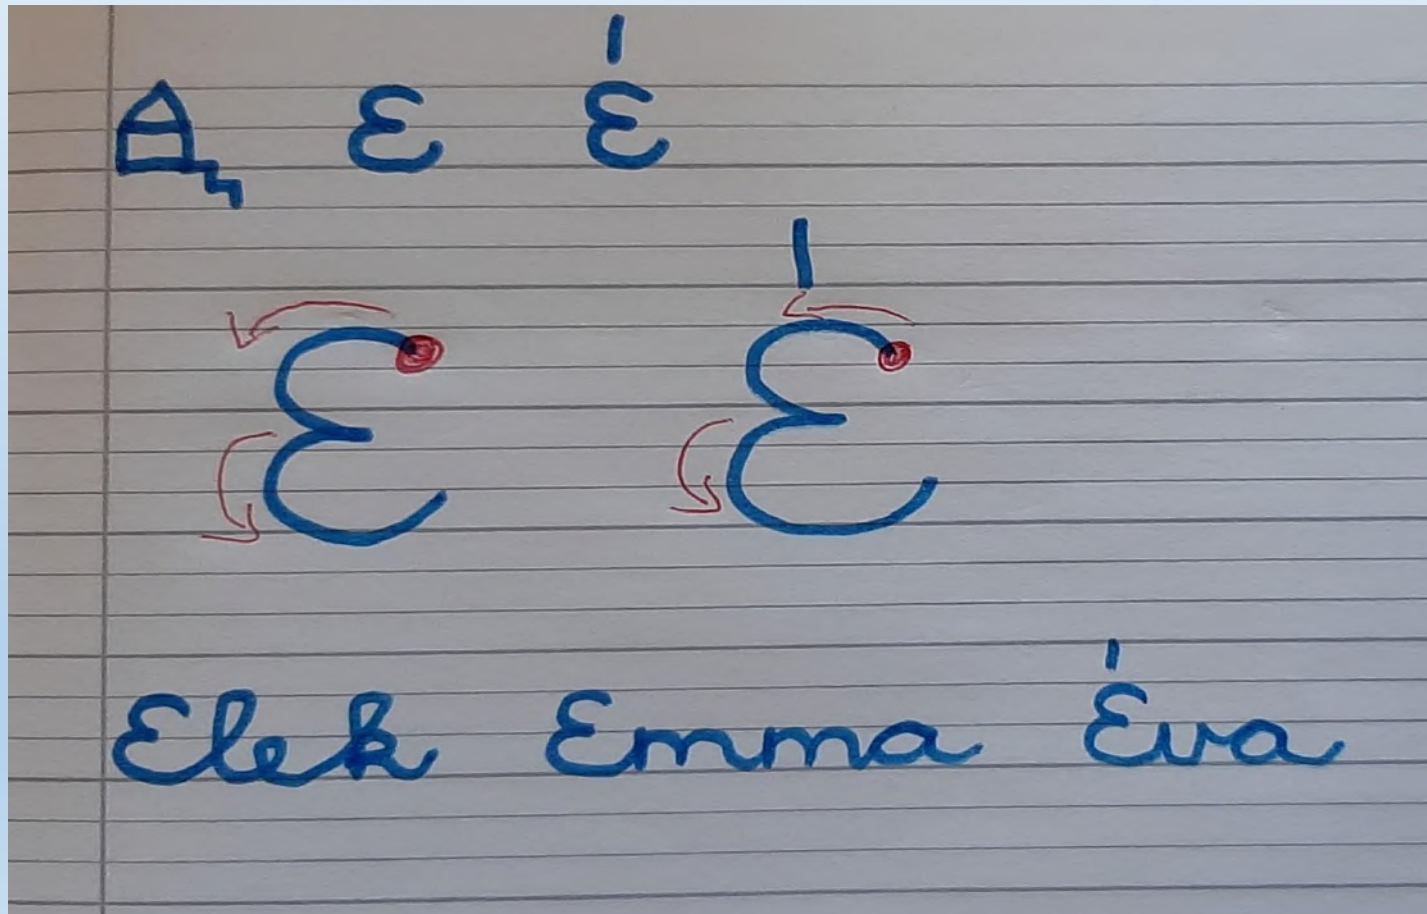 E É
E É
Elek Emma Éva